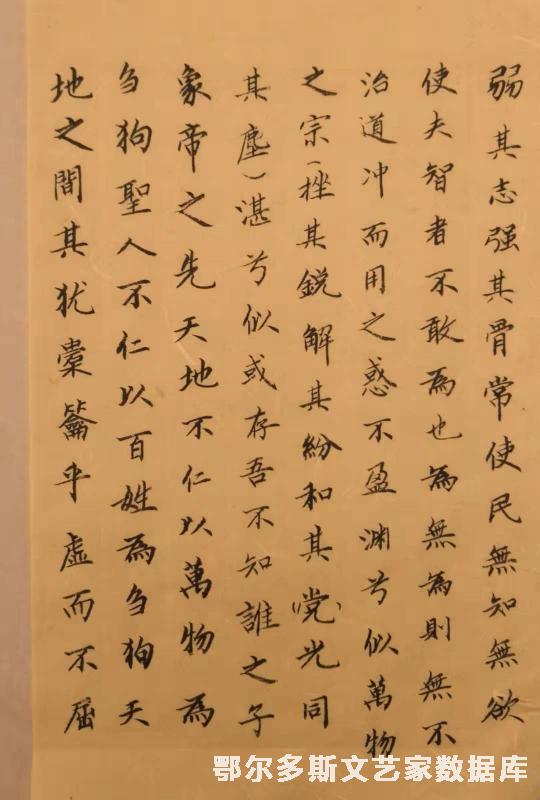 弱其志强其骨常使民無知無欲
使夫智者不敢為也為無為則無不
治道冲而用之惑不盈渊兮似萬物
之宗（挫其鋭解其紛和其(党)光同
其塵）湛兮似或存吾不知誰之子
象帝之先天地不仁以萬物為
刍狗聖人不仁以百姓為刍狗天
地之間其犹橐籥乎虚而不屈
鄂尔多斯文艺家数据库